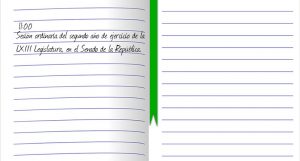 11:00
Sesión ordinaria del segundo año de ejercicio de la
LXIII Legislatura, en el Senado de la República.